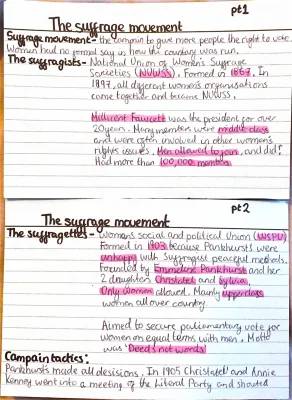 pt1
The suffrage movement
Suffrage movement - the campaign to give more people the right to vote.
Women had no formal say in how the country was run.
The suffragists - National Union of Women's Suffrage
Societies (NUWSS). Formed in 1867. In
1897, all different women's organisations
came together and became NUWSS.
Millicent Fawcett was the president for over
20 years. Many members were middle class
and were often involved in other women's
rights issues. Men allowed to join, and did!
Had more than 100,000 members.
pt2
The suffrage movement
The suffragettes - Womens social and political Union (WSPU)
Formed in 1903 because Pankhursts were
unhappy with suffragist peaceful methods.
Founded by Emmeline Pankhurst and her
2 daughters Christabel and Sylvia.
Only women allowed. Mainly upperclass
women all over country.
Aimed to secure parliamentary vote for
women on equal terms with men. Motto
was 'Deeds not words'
Campain tactics:
Pankhursts made all decisions. In 1905 Christabel and Annie
Kenney went into a meeting of the Liberal Party and shouted